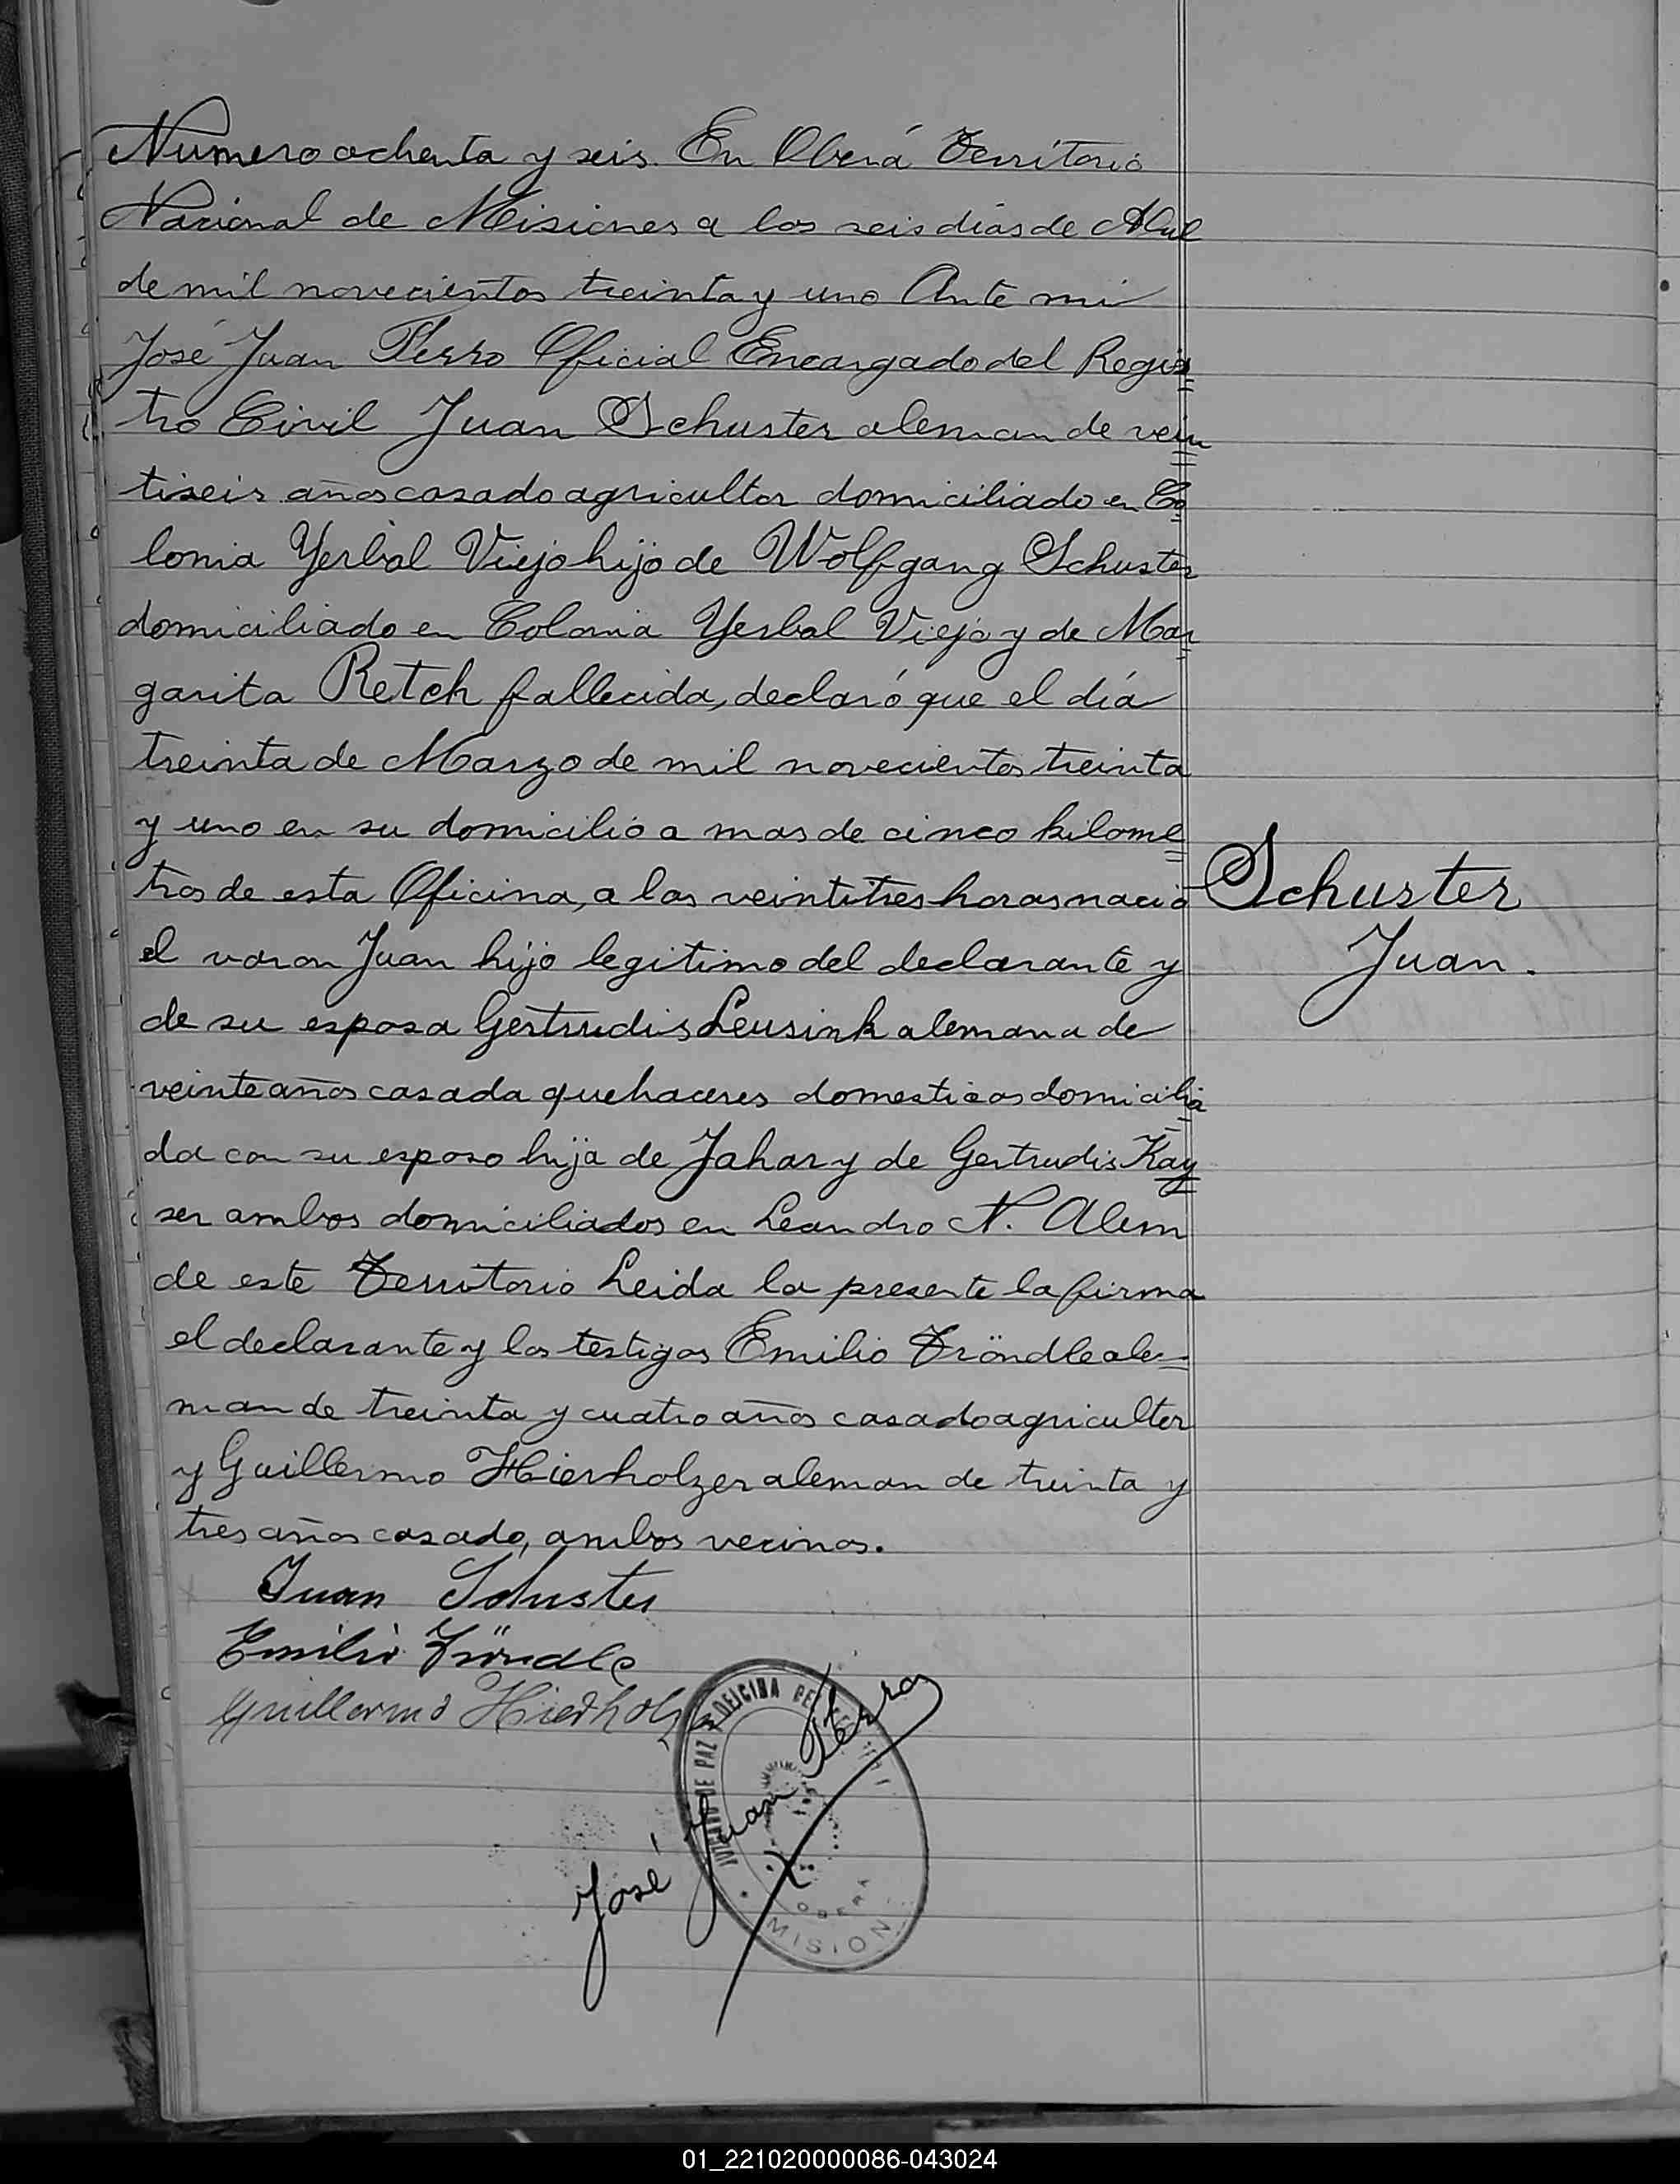 Numero ochenta y seis. En Oberá Territorio
Nacional de Misiones a los seis días de Abril
de mil novecientos treinta y uno Ante mi
José Juan Ferro Oficial Encargado del Regis
tro Civil Juan Schuster aleman de vein
tiseis años casado agricultor domiciliado en Co
lonia Yerbal Viejo hijo de Wolfgang Schuster
domiciliado en Colonia Yerbal Viejo y de Mar
garita Retch fallecida, declaró que el día
treinta de Marzo de mil novecientos treinta
y uno en su domicilio a mas de cinco kilome
tros de esta Oficina, a las veintitres horas nació
Schuster
Juan.
el varon Juan hijo legitimo del declarante y
de su esposa Gertrudis Leusink alemana de
veinte años casada quehaceres domesticos domicilia
da con su esposo hija de Jahar y de Gertrudis Kay
ser ambos domiciliados en Leandro N. Alem
de este Territorio Leida la presente la firma
el declarante y los testigos Emilio Tröndle ale
man de treinta y cuatro años casado agricultor
y Guillermo Hierholzer aleman de treinta y
tres años casado, ambos vecinos.
Juan Schuster
Emilio Tröndle
Guillermo Hierholzer
José Juan Ferro
JUZGADO DE PAZ Y OFICINA DEL
OBERA
MISION
01_221020000086-043024